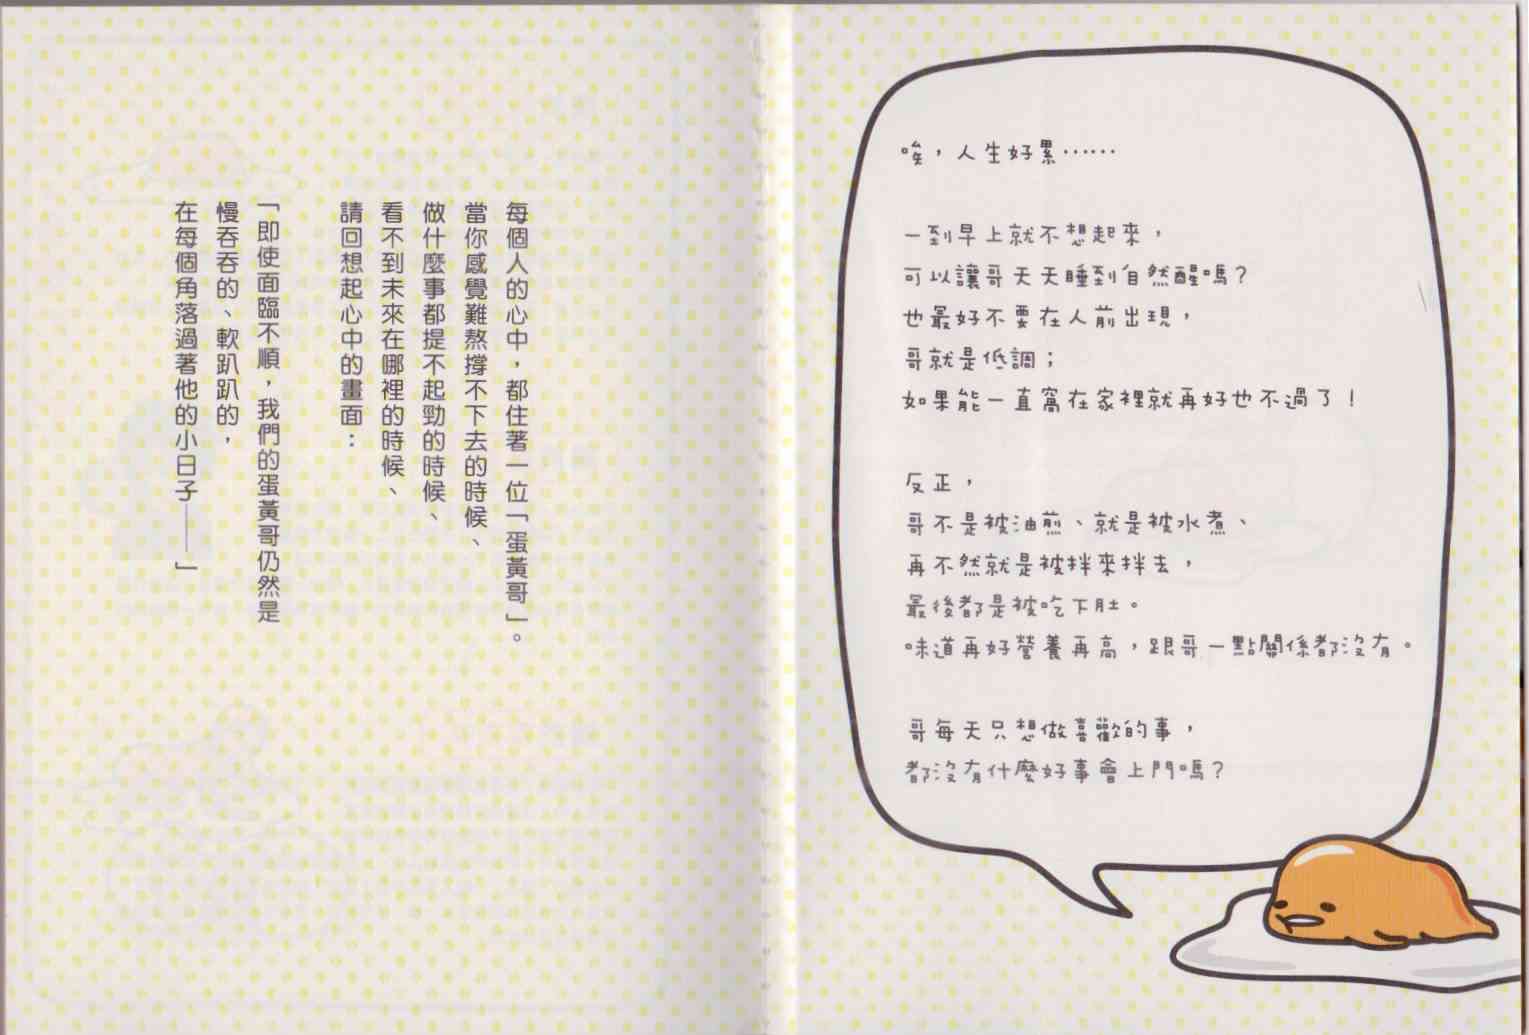 每個人的心中，都住著一位「蛋黃哥」。
當你感覺難熬撐不下去的時候、
做什麼事都提不起勁的時候、
看不到未來在哪裡的時候、
請回想起心中的畫面：
「即使面臨不順，我們的蛋黃哥仍然是
慢吞吞的、軟趴趴的，
在每個角落過著他的小日子——」
唉，人生好累……
一到早上就不想起來，
可以讓哥天天睡到自然醒嗎？
也最好不要在人前出現，
哥就是低調；
如果能一直窩在家裡就再好也不過了！
反正，
哥不是被油煎、就是被水煮、
再不然就是被拌來拌去，
最後都是被吃下肚。
味道再好營養再高，跟哥一點關係都沒有。
哥每天只想做喜歡的事，
都沒有什麼好事會上門嗎？